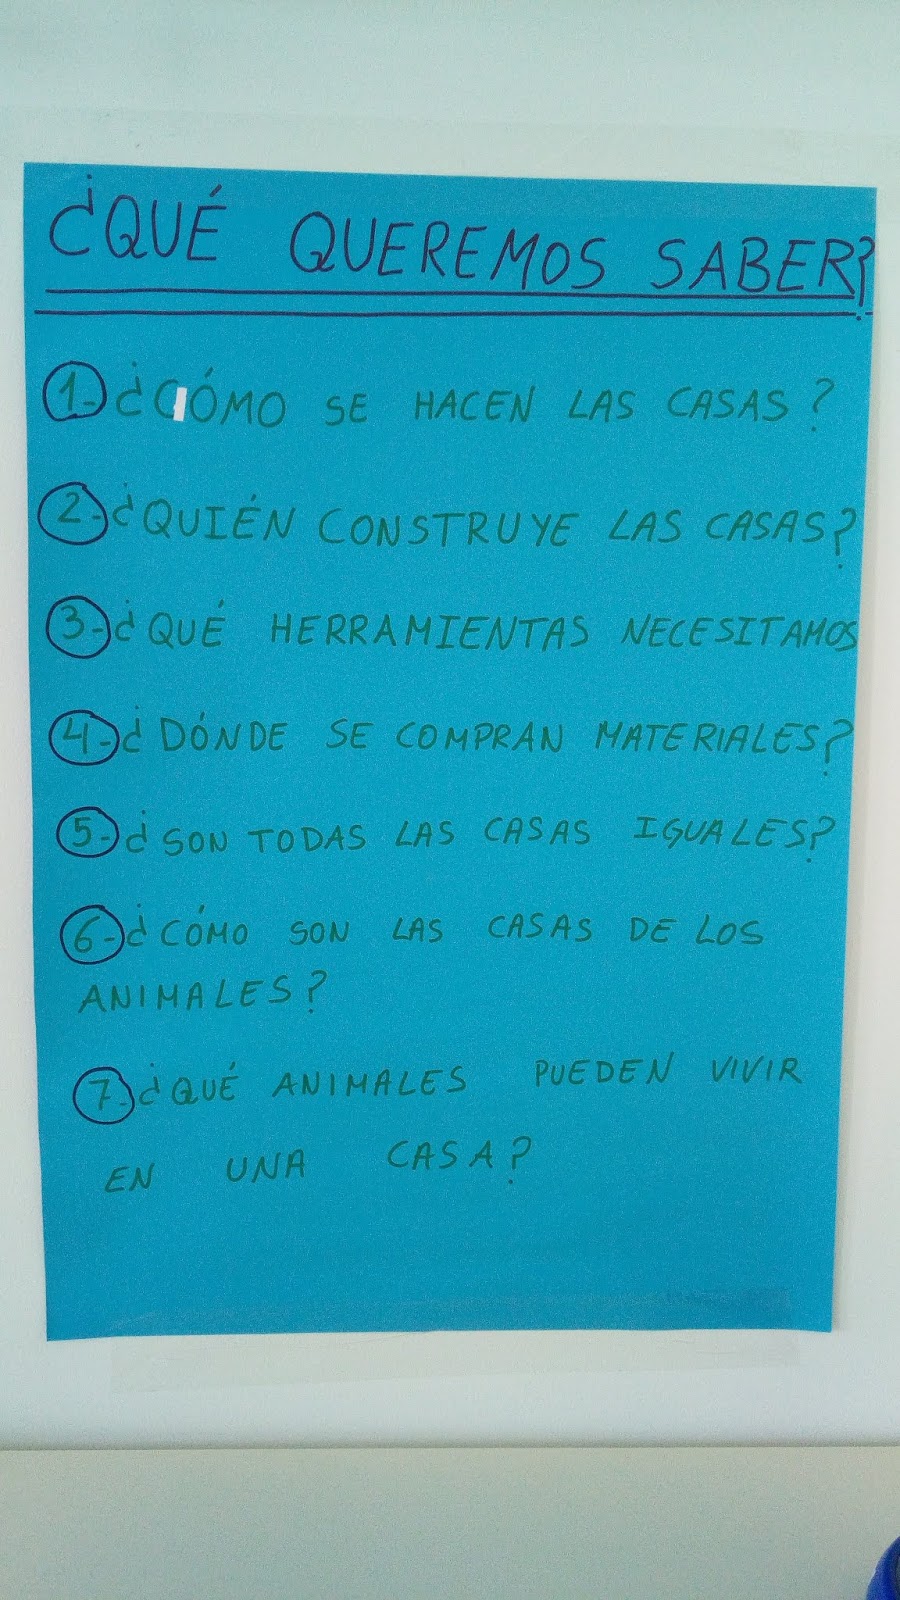 ¿QUÉ QUEREMOS SABER?
1.- ¿CÓMO SE HACEN LAS CASAS?
2.- ¿QUIÉN CONSTRUYE LAS CASAS?
3.- ¿QUÉ HERRAMIENTAS NECESITAMOS
4.- ¿DÓNDE SE COMPRAN MATERIALES?
5.- ¿SON TODAS LAS CASAS IGUALES?
6.- ¿CÓMO SON LAS CASAS DE LOS
ANIMALES?
7.- ¿QUÉ ANIMALES PUEDEN VIVIR
EN UNA CASA?